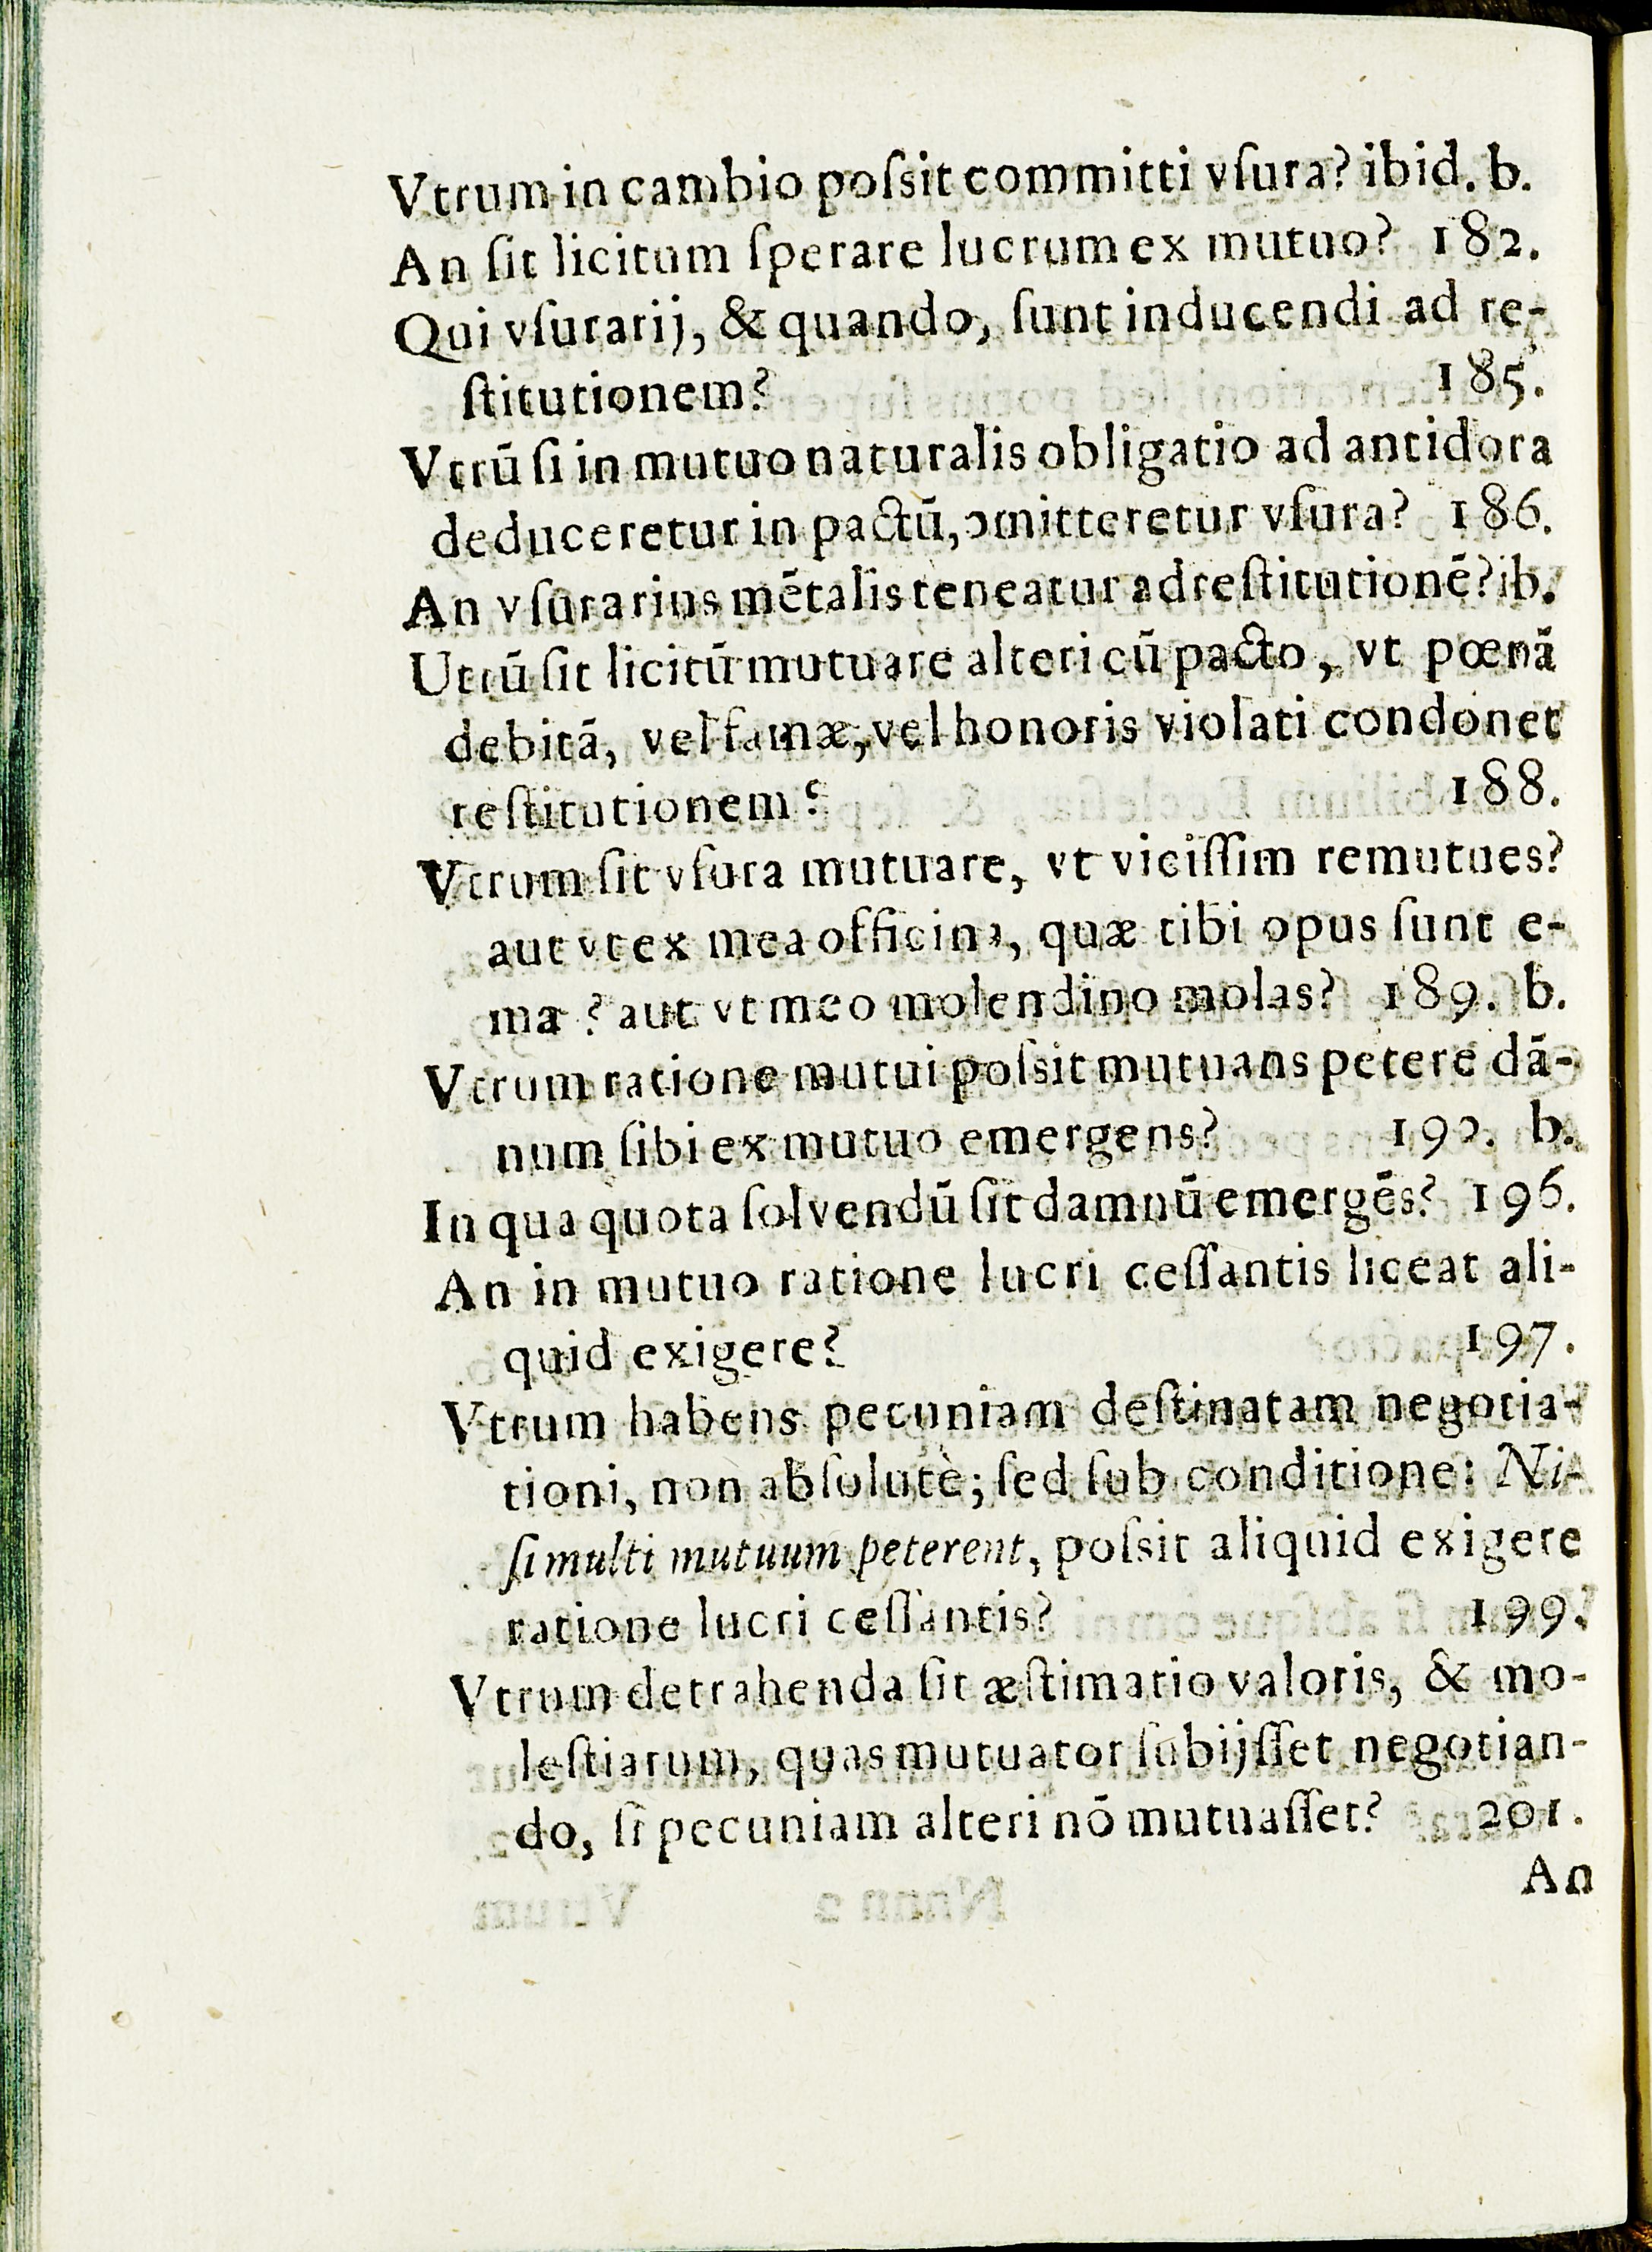 Vtrum in cambio poſsit committi vſura? ibid. b.
An ſit licitum ſperare lucrum ex mutuo? 182.
Qui vſurarij, & quando, ſunt inducendi ad re-
ſtitutionem? 185.
Vtrū ſi in mutuo naturalis obligatio ad antidora
deduceretur in pactū, ɔmitteretur vſura? 186.
An vſurarius mētalis teneatur ad reſtitutionē? ib.
Utrū ſit licitū mutuare alteri cū pacto, vt pœnā
debitā, vel famæ, vel honoris violati condonet
reſtitutionem? 188.
Vtrum ſit vſura mutuare, vt viciſſim remutues?
aut vt ex mea officina, quæ tibi opus ſunt e-
ma? aut vt meo molendino molas? 189. b.
Vtrum ratione mutui poſsit mutuans petere dā-
num ſibi ex mutuo emergens? 192. b.
In qua quota ſolvendū ſit damnū emergēs? 196.
An in mutuo ratione lucri ceſſantis liceat ali-
quid exigere? 197.
Vtrum habens pecuniam deſtinatam negotia-
tioni, non abſolutè; ſed ſub conditione: Ni-
ſi multi mutuum peterent, poſsit aliquid exigere
ratione lucri ceſſantis? 199.
Vtrum detrahenda ſit æſtimatio valoris, & mo-
leſtiarum, quas mutuator ſubijſſet negotian-
do, ſi pecuniam alteri nō mutuaſſet? 201.
An